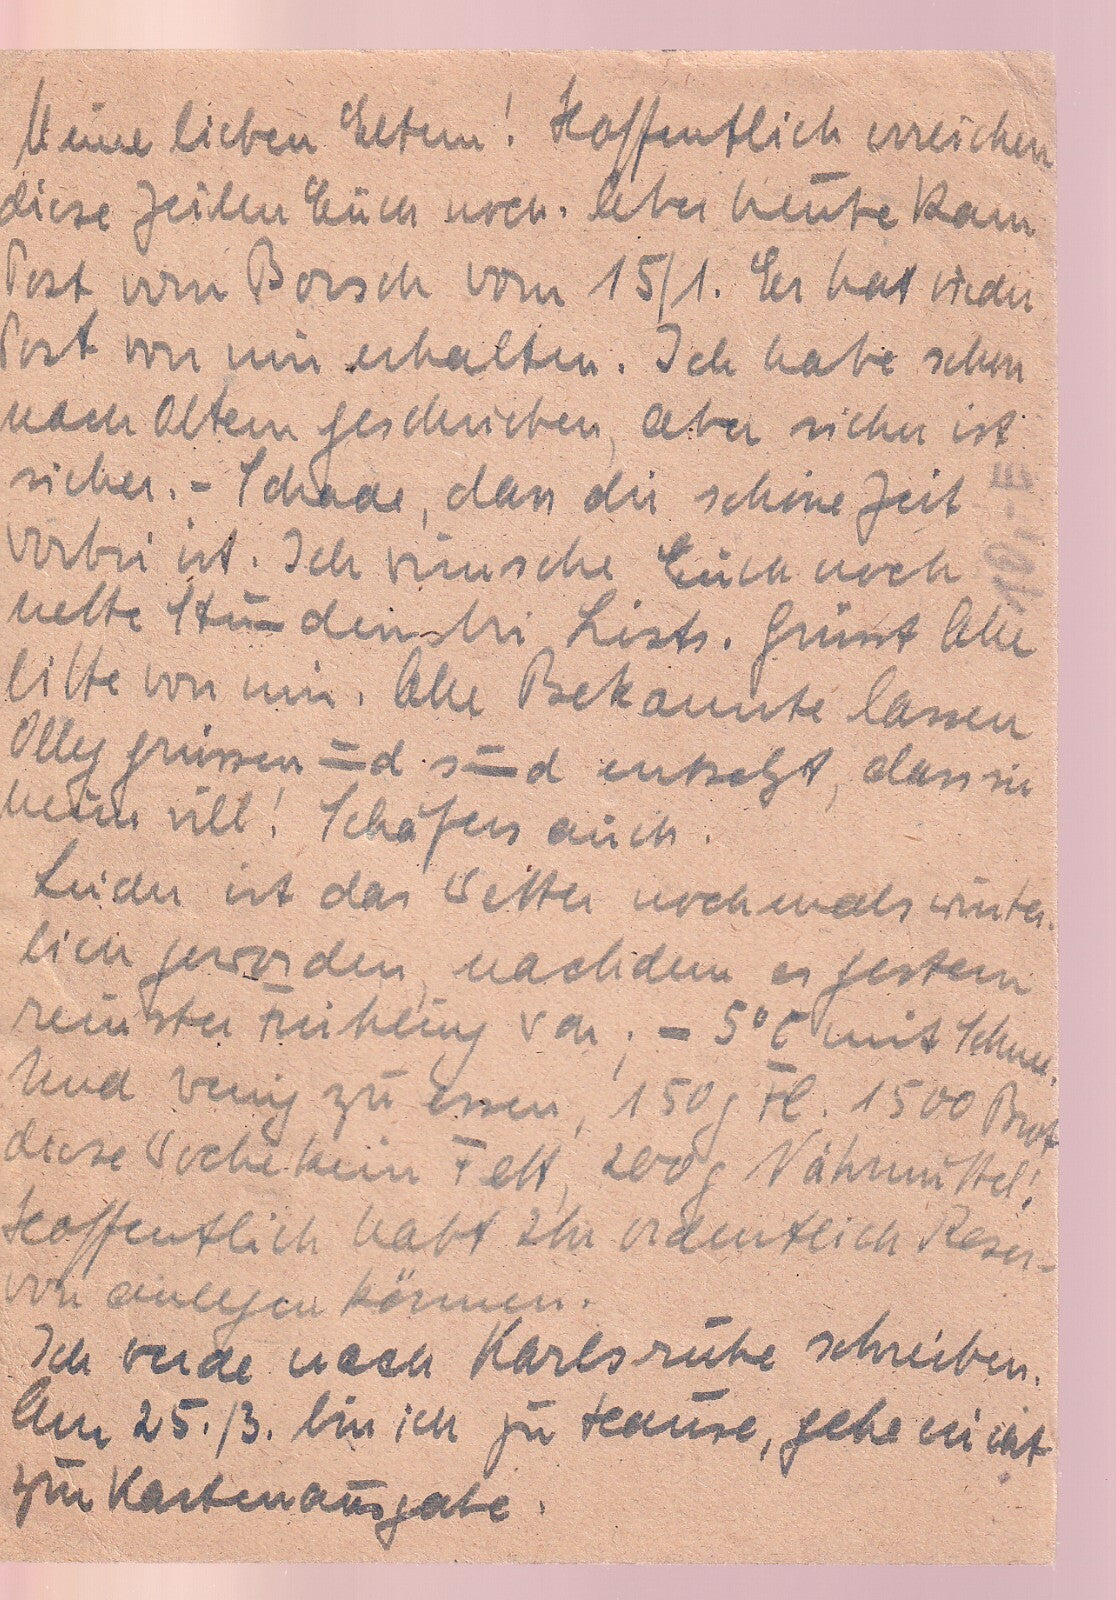 Meine lieben Eltern! Hoffentlich erreichen
diese Zeilen Euch noch. Aber heute kam
Post vom Borsch vom 15/1. Er hat wieder
Post von mir erhalten. Ich habe schon
nach Altern geschrieben, aber sicher ist
sicher. - Schade, dass die schöne Zeit
vorbei ist. Ich wünsche Euch noch
nette Stunden bei Lists. Grüsst Alle
bitte von mir. Alle Bekannte lassen
Olly grüssen und sind entsetzt, dass sie
heim will! Schäfers auch.
Leider ist das Wetter nochmals winter-
lich geworden, nachdem es gestern
reinster Frühling war; - 5°C mit Schnee.
Und wenig zu essen, 150 g Fl. 1500 Brot
diese Woche kein Fett, 200g Nährmittel!
Hoffentlich habt Ihr ordentlich Reser-
ven anlegen können.
Ich werde nach Karlsruhe schreiben.
Am 25./3. bin ich zu Hause, gehe nicht
zur Kartenausgabe.